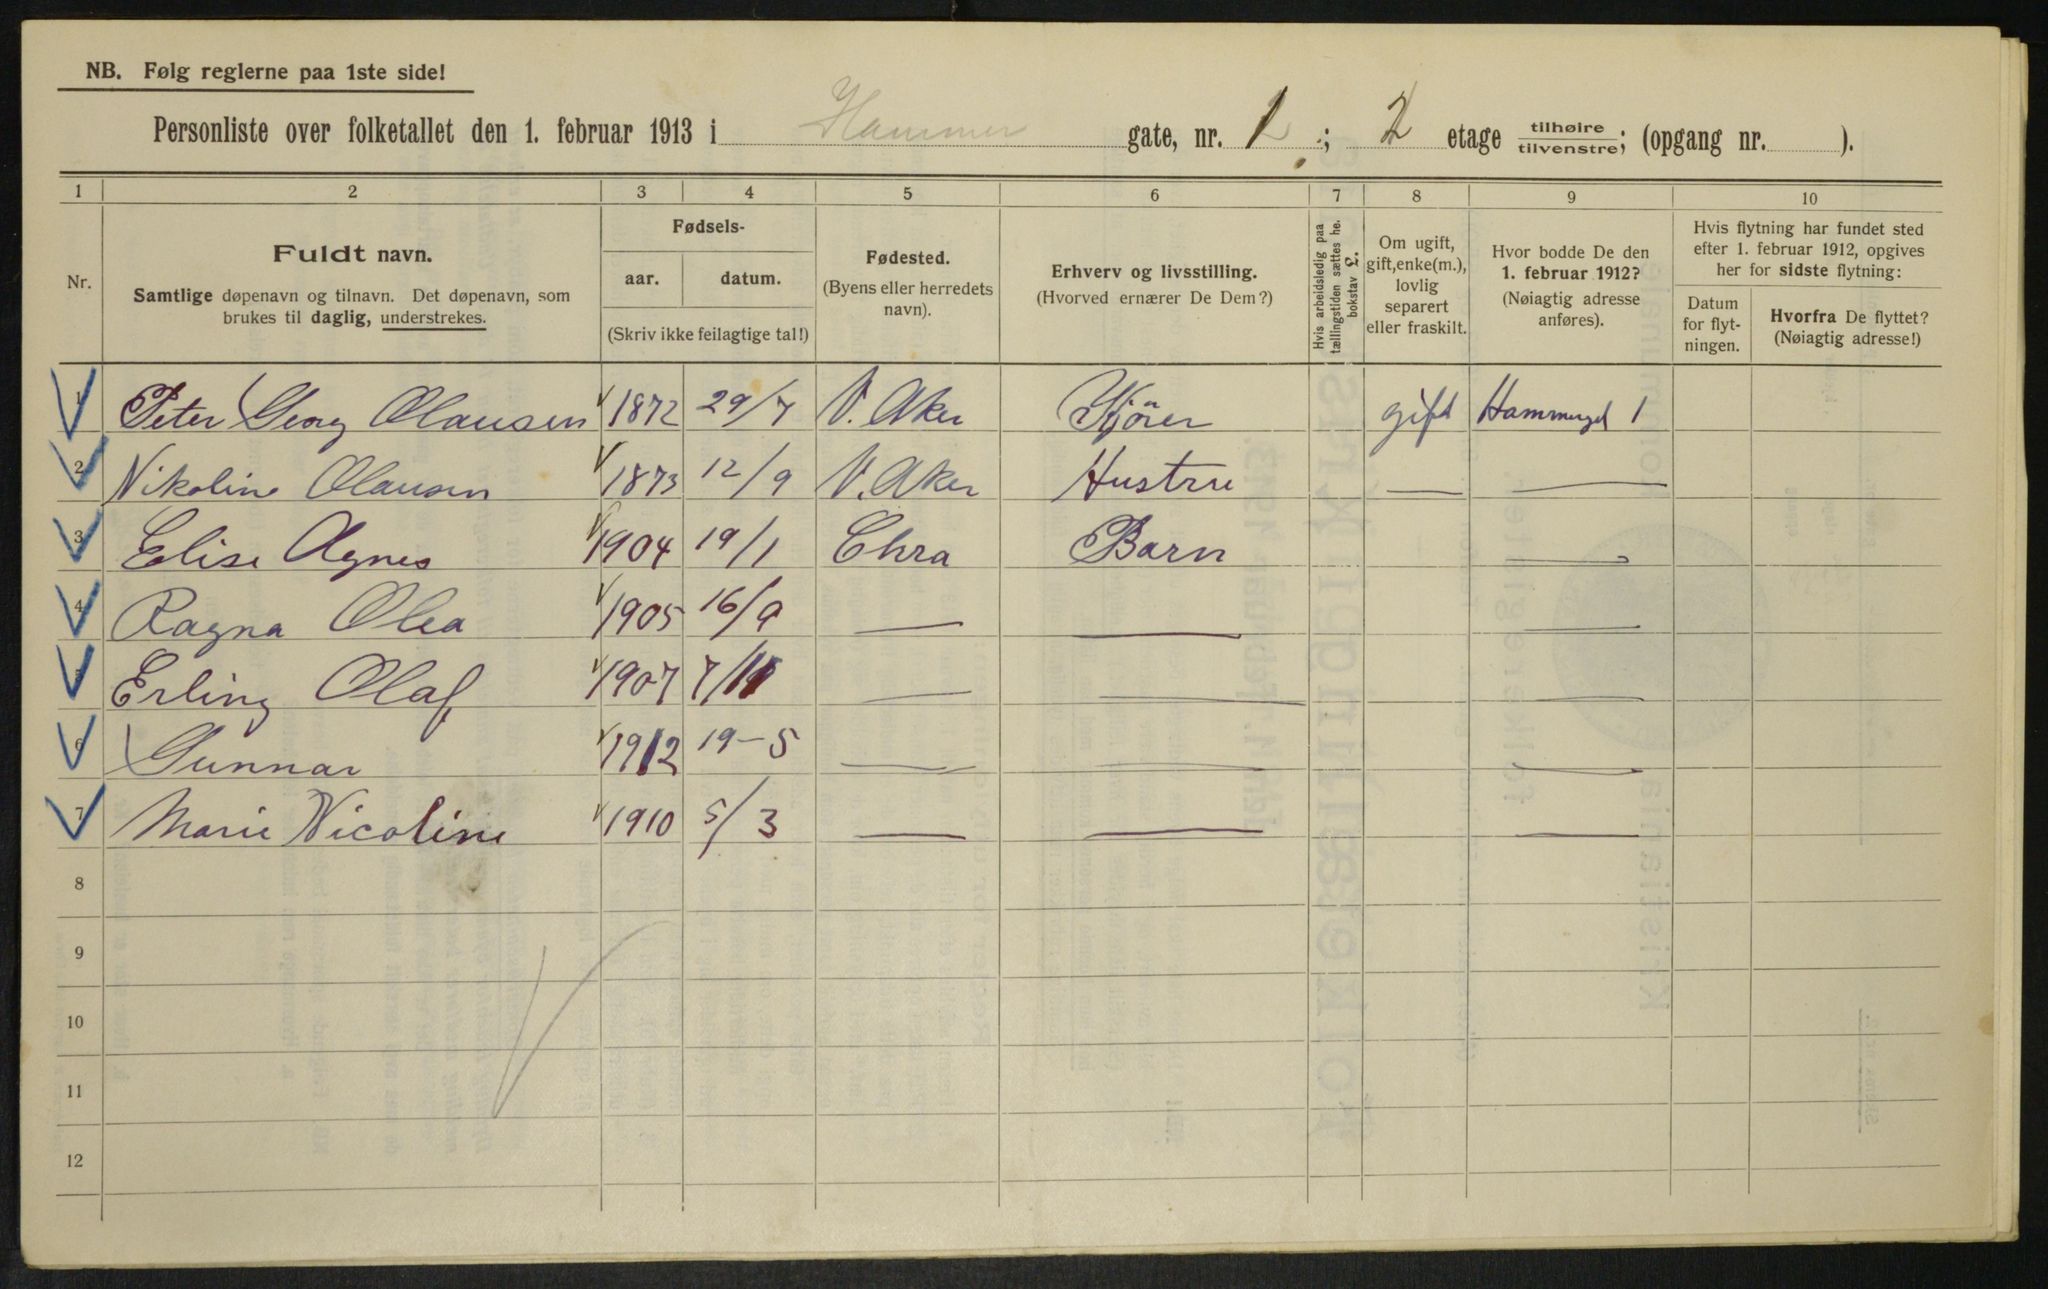 NB. Følg reglerne paa 1ste side!
Personliste over folketallet den 1. februar 1913 i Hammer gate, nr. 1; 2 etage tilhøire tilvenstre; (opgang nr. ).
1 2 3 4 5 6 7 8 9 10
Nr.
Fuldt navn.
Samtlige døpenavn og tilnavn. Det døpenavn, som
brukes til daglig, understrekes.
Fødsels-
aar. datum.
(Skriv ikke feilagtige tal!)
Fødested.
(Byens eller herredets
navn).
Erhverv og livsstilling.
(Hvorved ernærer De Dem?)
Hvis arbeidsledig paa
tællingstiden sættes he.
bokstav L.
Om ugift,
gift, enke(m.),
lovlig
separert
eller fraskilt.
Hvor bodde De den
1. februar 1912?
(Nøiagtig adresse
anføres).
Hvis flytning har fundet sted
efter 1. februar 1912, opgives
her for sidste flytning:
Datum
for flyt-
ningen.
Hvorfra De flyttet?
(Nøiagtig adresse!)
1 Peter Georg Olausen 1872 29/7 V. Aker Kjörer gift Hammergd 1
2 Nikoline Olausen 1873 12/9 V. Aker Hustru — —
3 Elise Agnes 1904 19/1 Chra Barn —
4 Ragna Olea 1905 16/9 — — —
5 Erling Olaf 1907 7/11 — — —
6 Gunnar 1912 19-5 — — —
7 Marie Nicoline 1910 5/3 — — —
8
9
10
11
12